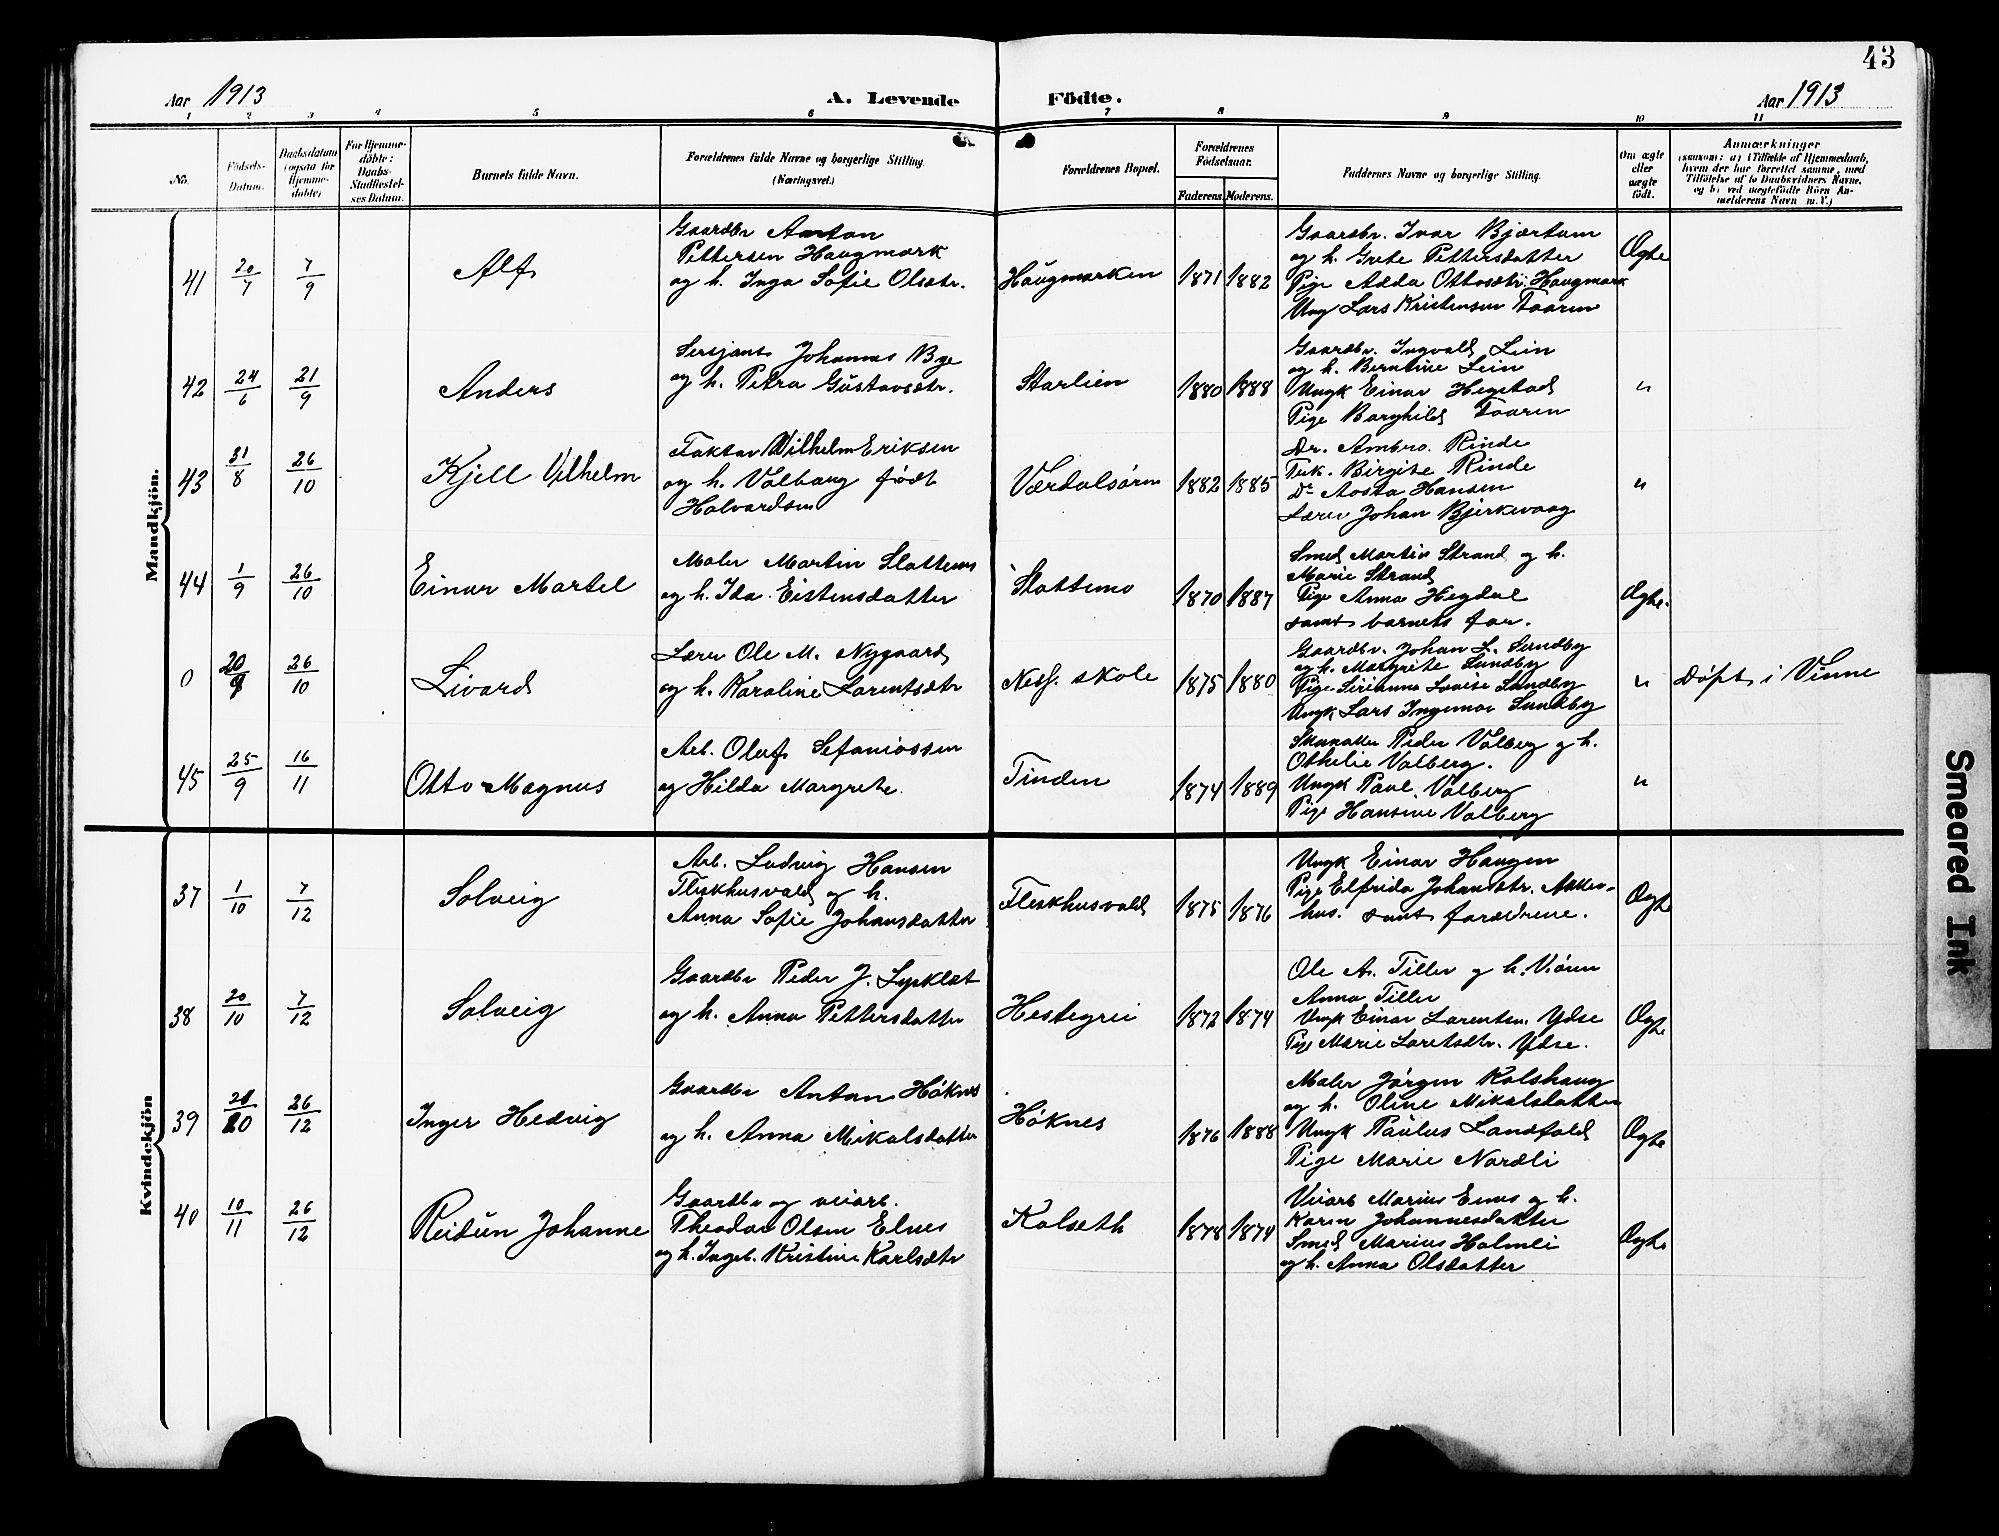 43
Aar 1913
A. Levende Födte.
Aar 1913
1 2 3 4 5 6 7 8 9 10 11
No.
Födsels-Datum.
Daabsdatum (ogsaa for Hjemme-döbte)
For Hjemme-döbte: Daabs-Stadfæstel-ses Datum.
Barnets fulde Navn.
Forældrenes fulde Navne og borgerlige Stilling.
(Næringsvei.)
Forældrenes Bopæl.
Forældrenes Födselsaar.
Faderens. Moderens.
Faddernes Navne og borgerlige Stilling.
Om ægte eller uægte födt.
Anmærkninger
(saasom: a) i Tilfælde af Hjemmedaab,
hvem der har forrettet samme, med
Tilföielse af to Daabsvidners Navne,
og b) ved uægtefödte Börn An-
melderens Navn m. V.)
Mandkjön.
41 20/7 7/9 Alf
Gaardbr Anton
Pettersen Haugmark
og h. Inga Sofie Olsdtr.
Haugmarken 1871 1882
Gaardbr. Ivar Bjartum
og h. Grete Pettersdatter
Pige Adda Ottosdtr. Haugmark
Ung Lars Kristensen Faaren
Ægte
42 24/6 21/9 Anders
Sersjant Johannes Bye
og h. Petra Gustavsdtr.
Storlien 1880 1888
Gaardbr. Ingvald Lein
og h. Berntine Lein
Ungk Einar Hegstad
Pige Borghild Faaren
"
43 31/8 26/10 Kjell Vilhelm
Faktor Wilhelm Eriksen
og h. Valborg født
Halvardsen
Værdalsøren 1882 1885
Dr. Ambro. Rinde
Frk. Birgite Rinde
Do Aosta Hansen
Lærer Johan Bjerkevaag
"
44 1/9 26/10 Einar Martel
Maler Martin Slottemo
og h. Ida Eistensdatter
Slottemo 1870 1887
Smed Martin Strand og h.
Marie Strand
Pige Anna Hegdal
samt barnets far.
Ægte.
0 20/9 26/10 Livard
Lærer Ole M. Nygaard
og h. Karoline Larentsdtr
Ness. skole 1875 1880
Gaardbr. Johan L. Sundby
og h. Margrete Sundby
Pige Sirianna Lovise Sundby
Ungk Lars Ingemar Sundby
"
Døpt i Vinne
45 25/9 16/11 Otto Magnus
Arb. Oluf Sefaniassen
og Hilda Margrete.
Tinden 1874 1889
Peder Valberg og h.
Othelie Valberg.
Ungk Paul Valberg
Pige Hansine Valberg
"
Kvindekjön
37 1/10 7/12 Solveig
Arb. Ludvig Hansen
Fleskhusvald og h.
Anna Sofie Johansdatter
Fleskhusvald 1875 1876
Ungk Einar Haugen
Pige Elfrida Johansdtr. Akker-
hus. samt forældrene.
Ægte
38 20/10 7/12 Solveig
Gaardbr Peder J. Lyseklæt
og h. Anna Pettersdatter
Hestegrei 1872 1874
Ole A. Tiller og h. Vjøren
Anna Tiller
Ungk Einar Larentsen Ydse
Pige Marie Laretsdtr. Ydse.
Ægte
39 21/10 26/12 Inger Hedvig
Gaardbr Anton Høknes
og h. Anna Mikalsdatter
Høknes 1876 1888
Maler Jørgen Kolshaug
og h. Oline Mikalsdatter
Ungk Paulus Landfald
Pige Marie Nordli
Ægte
40 10/11 26/12 Reidun Johanne
Gaardbr og veiarb.
Theodor Olsen Elnes
og h. Ingeb. Kristine Karlsdtr
Kolseth 1878 1874
Veiarb Marius Enes og h.
Karen Johannesdatter
Smed Marius Holmli
og h. Anna Olsdatter
Ægte
Smeared Ink